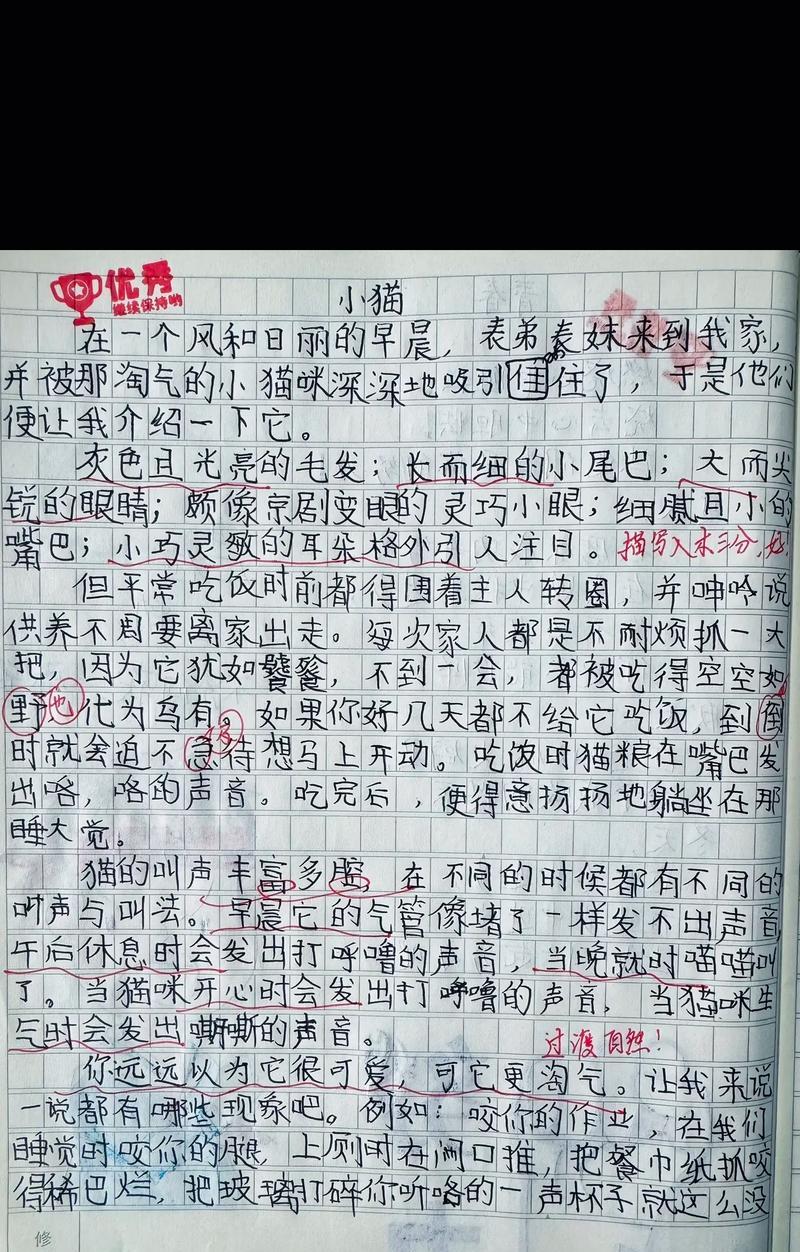 优秀
继续保持哟
小猫
在一个风和日丽的早晨，表弟表妹来到我家，
并被那淘气的小猫咪深深地吸引住了，于是他们
便让我介绍一下它。
灰色且光亮的毛发；长而细的小尾巴；大而尖
锐的眼睛；颇像京剧变眼的灵巧小眼；细腻且小的
嘴巴；小巧灵敏的耳朵格外引人注目。描写入木三分，好！
但平常吃饭时前都得围着主人转圈，并呻吟说
供养不周要离家出走。每次家人都是不耐烦抓一大
把，因为它犹如饕餮，不到一会，都被吃得空空如
野也代为乌有。如果你好几天都不给它吃饭，到倒
时就会迫不急及待想马上开动。吃饭时猫粮在嘴巴发
出咯，咯的声音。吃完后，便得意扬扬地躺坐在那
睡大觉。
猫的叫声丰富多腔，在不同的时候都有不同的
叫声与叫法。早晨它的气管像堵了一样发不出声音，
午后休息时会发出打呼噜的声音，当晚就时喵喵叫
了。当猫咪开心时会发出打呼噜的声音，当猫咪生
气时会发出嘶嘶的声音。
过渡自然！
你远远以为它很可爱，可它更淘气。让我来说
一说都有哪些现象吧。例如：咬你的作业，在我们
睡觉时咬你的腿，上厕时在门口推，把餐巾纸抓咬
得稀巴烂，把玻璃打碎你听咯的一声杯子就这么没
修